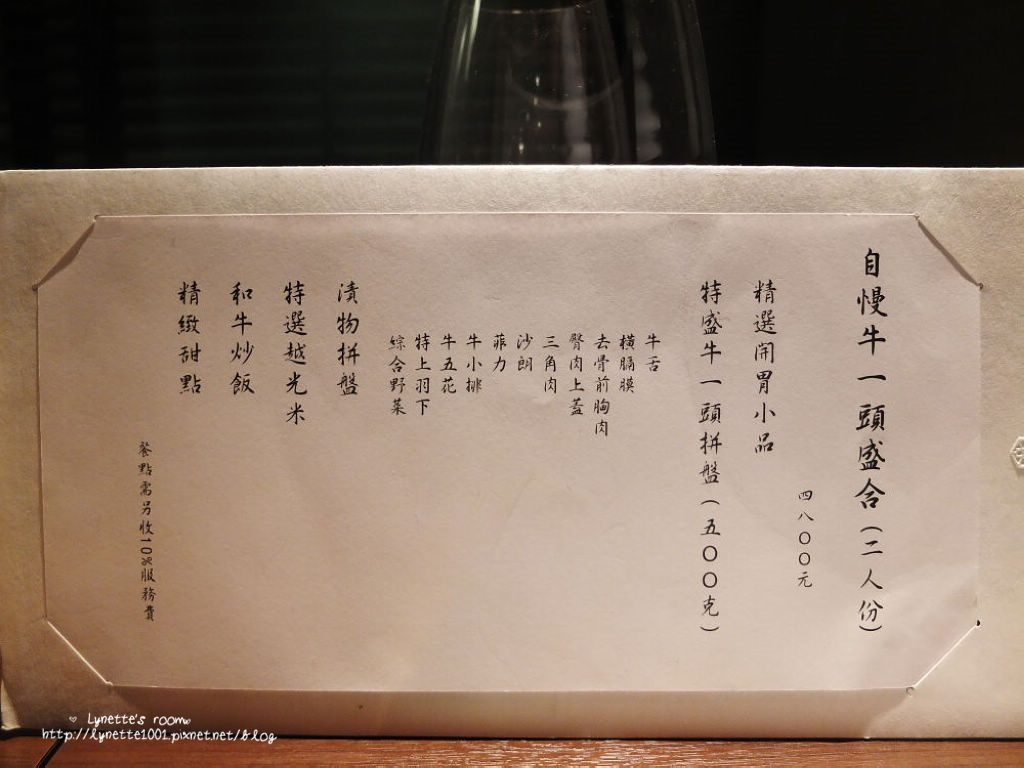 自慢牛一頭盛合(二人份)
四八〇〇元
精選開胃小品
特盛牛一頭拼盤(五〇〇克)
牛舌
橫膈膜
去骨前胸肉
臀肉上蓋
三角肉
沙朗
菲力
牛小排
牛五花
特上羽下
綜合野菜
漬物拼盤
特選越光米
和牛炒飯
精緻甜點
餐點需另收10%服務費
Lynette's room
http://lynette1001.pixnet.net/blog